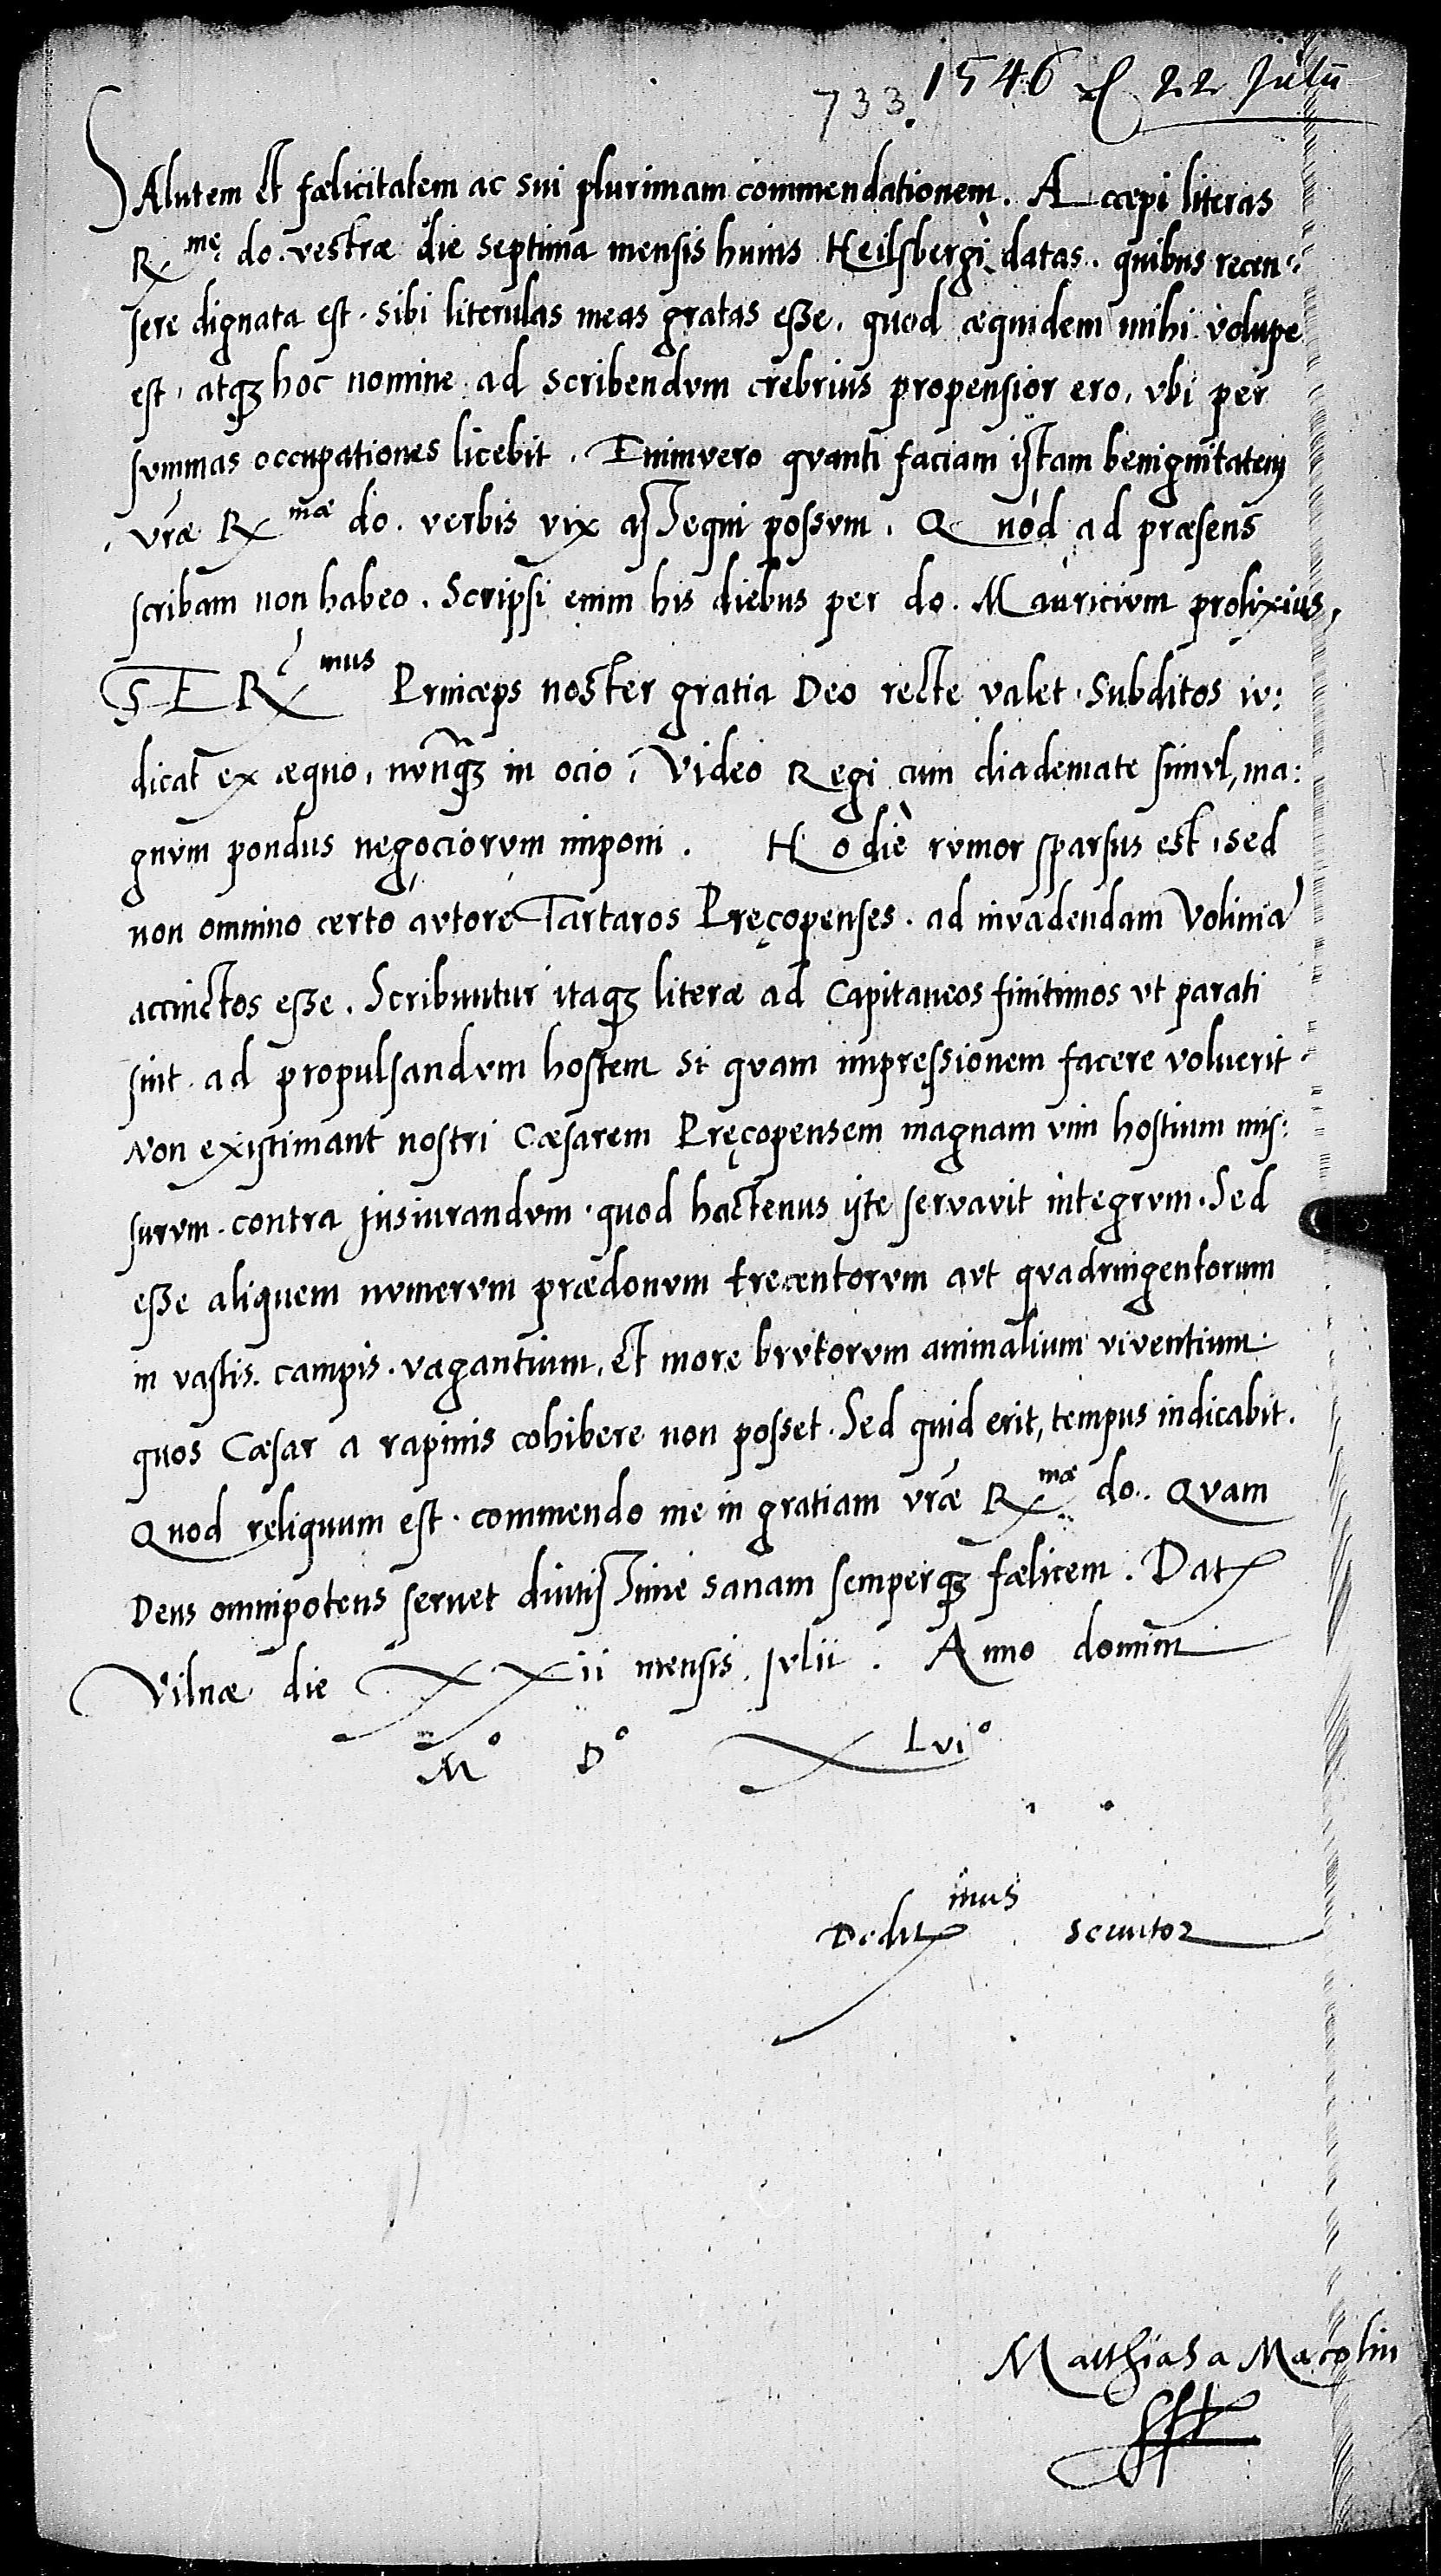 733. 1546 22 Julii
SAlutem Et fœlicitatem ac sui plurimam commendationem. Accœpi literas
Rmę do. vestræ die septima mensis huius Heilsbergi datas. quibus recen=
sere dignata est. sibi literulas meas gratas esse. quod æquidem mihi volupe
est, atq3 hoc nomine ad scribendvm crebrius propensior ero, vbi per
svmmas occupationes licebit. Enimvero qvanti faciam istam benignitatem
vræ Rmæ do. verbis vix assequi possvm. Quod ad præsens
scribam non habeo. Scripsi enim his diebus per do. Mauricivm prolixius,
SERmus Princeps noster gratia Deo recte valet. Subditos iv:
dicat ex æquo, nvnq̃3 in ocio. Video Regi cum diademate simvl, ma:
gnvm pondus negociorvm imponi. Hodie rvmor sparsus est, sed
non omnino certo avtore Tartaros Pręcopenses. ad invadendam Voliniã
accinctos esse. Scribuntur itaq3 literæ ad Capitaneos finitimos vt parati
sint. ad propulsandvm hostem si qvam impressionem facere voluerit.
Non existimant nostri Cæsarem Pręcopensem magnam vim hostium mis:
survm. contra jusiurandvm. quod hactenus iste servavit integrvm. Sed
esse aliquem nvmervm prædonvm trecentorvm avt qvadringentorum
in vastis. campis. vagantium, Et more brvtorvm animalium viventium.
quos Cæsar a rapinis cohibere non posset. Sed quid erit, tempus indicabit.
Quod reliquum est. commendo me in gratiam vræ Rmæ do. Qvam
Deus omnipotens servet diutissime sanam semperq3 fœlicem. Dat
Vilnæ die XXii mensis Jvlii. Anno domini
Mº Dº XLviº
Deditmus servitor
Matthias a Macolin